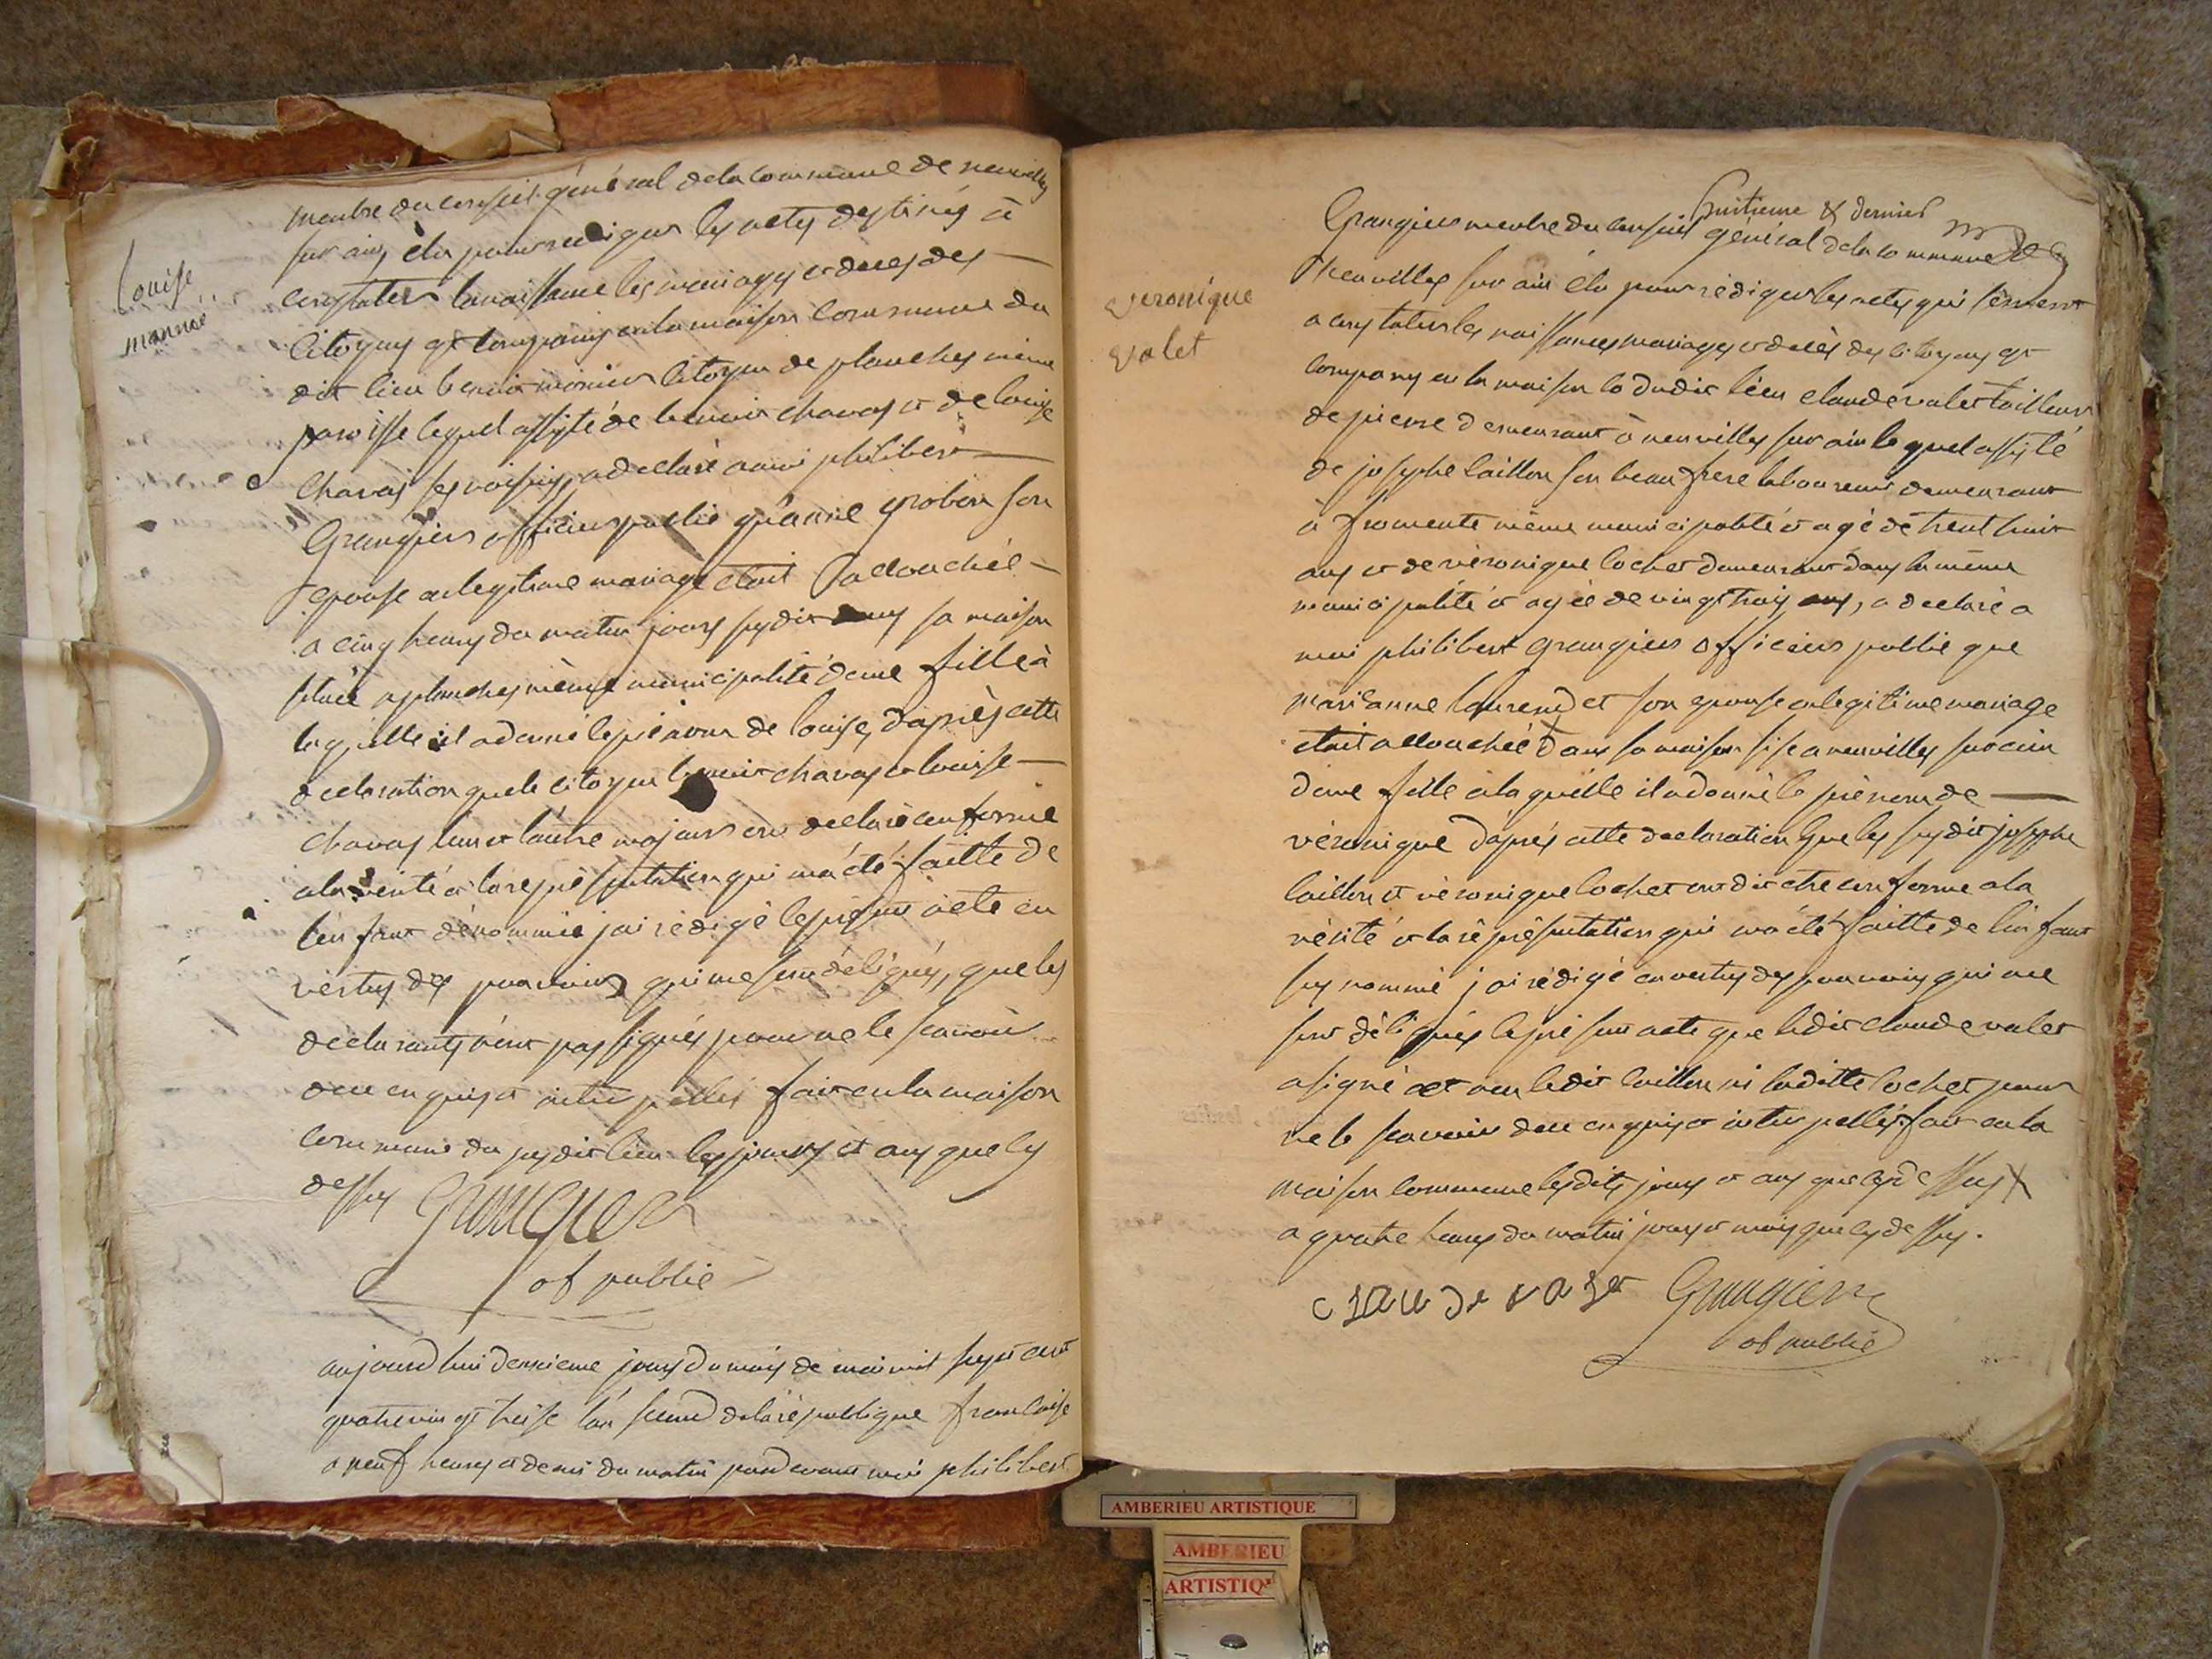 membre du conseil général de la commune de neuvilles
sur ain, élu pour rediger les actes destinés à
constater la naissance les mariages et deces des
citoyens est comparus en la maison commune du
dit lieu benoit monier citoyen de planches même
paroisse lequel assisté de benoit chavas et de louise
chavas ses voisins, a declaré a moi philibert
Grangier officier public qu'anne grobon son
epouse en legitime mariage etoit accouchée
a cinq heures du matin jours susdit dans sa maison
située a planches même municipalité d'une fille à
laquelle il a donné le prénom de louise, d'après cette
declaration que le citoyen benoit chavas et louise
chavas l'un et l'autre majeurs ont declaré conforme
a la verité et la représentation qui m'a été faitte de
l'enfant dénommée j'ai rédigé le présent acte en
vertus des pouvoirs qui me sont déligués, que les
declarants n'ont pas signés pour ne le scavoir
de ce enquis et interpellés fait en la maison
commune du susdit lieu les jours et ans que cy
dessus Grangier
of public
aujourd'hui deuxieme jours du mois de mai mil sept cent
quatre vingt treise l'an second de la république francoise
a neuf heures et demi du matin pardevant moi philibert
Louise
monnié
huitieme & dernier
Grangier membre du conseil général de la commune de
Neuvilles sur ain élu pour rédiger les actes qui servent
a constater les naissances mariages et decès des citoyens est
comparus en la maison co dudit lieu claude valet tailleur
de pierre demeurant à neuvilles sur ain lequel assisté
de josephe caillon son beau frere laboureur demeurant
à fromente même municipalité et agé de trent huit
ans et de véronique cochet demeurant dans la même
municipalité et agée de vingt trois ans, a declaré a
moi philibert grangier officier public que
marianne son epouse en legitime mariage
etoit accouchée dans sa maison sise a neuvilles sur ain
d'une fille a laquelle il a donné le prénom de
véronique d'après cette declaration que les susdit josephe
caillon et véronique cochet ont dit etre conforme a la
vérité et la réprésentation qui m'a été faitte de l'enfant
sus nommé j'ai rédigé en vertus des pouvoirs qui me
sont déligués le présent acte que ledit claude valet
a signé et non ledit caillon ni laditte cochet pour
ne le scavoir de ce enquis et interpellés fait en la
maison commune lesdits jours et ans que cy dessus
a quatre heures du matin jours et mois que cy dessus.
claude valet Grangier
of public
veronique
valet
AMBERIEU ARTISTIQUE
AMBERIEU
ARTISTIQ